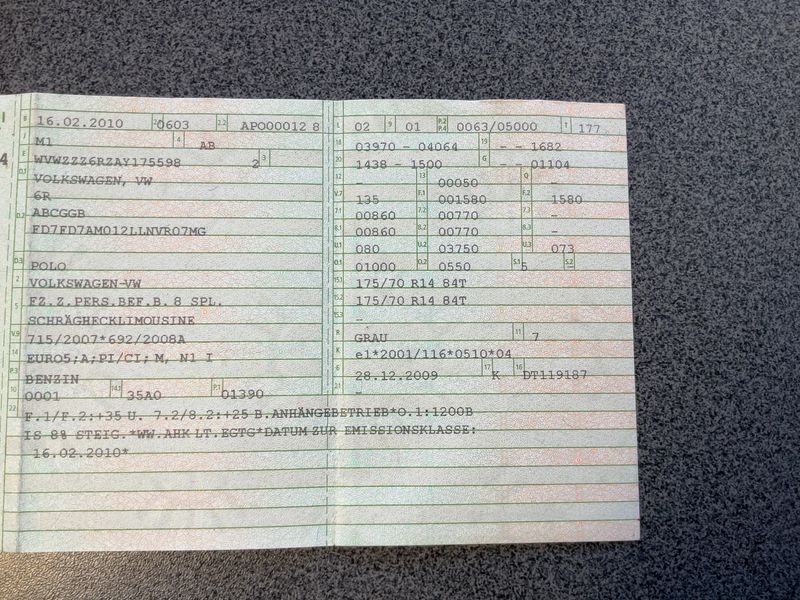 B 16.02.2010 2.1 0603 2.2 APO00012 8
J M1 4 AB
E WVWZZZ6RZAY175598 3 2
D.1 VOLKSWAGEN, VW
6R
D.2 ABCGGB
FD7FD7AM012LLNVR07MG
D.3 POLO
2 VOLKSWAGEN-VW
5 FZ.Z.PERS.BEF.B. 8 SPL.
SCHRÄGHECKLIMOUSINE
V.9 715/2007*692/2008A
14 EURO5;A;PI/CI; M, N1 I
P.3 BENZIN
10 0001 14.1 35A0 P.1 01390
22 F.1/F.2:+35 U. 7.2/8.2:+25 B.ANHÄNGEBETRIEB*O.1:1200B
IS 8% STEIG.*WW.AHK LT.EGTG*DATUM ZUR EMISSIONSKLASSE:
16.02.2010*
L 02 9 01 P.2 P.4 0063/05000 T 177
18 03970 - 04064 19 - - 1682
20 1438 - 1500 G - - 01104
12 - 13 00050 Q -
V.7 135 F.1 001580 F.2 1580
7.1 00860 7.2 00770 7.3 -
8.1 00860 8.2 00770 8.3 -
U.1 080 U.2 03750 U.3 073
O.1 01000 O.2 0550 S.1 5 S.2 -
15.1 175/70 R14 84T
15.2 175/70 R14 84T
15.3 -
R GRAU 11 7
K e1*2001/116*0510*04
6 28.12.2009 17 K 16 DT119187
21 -
4